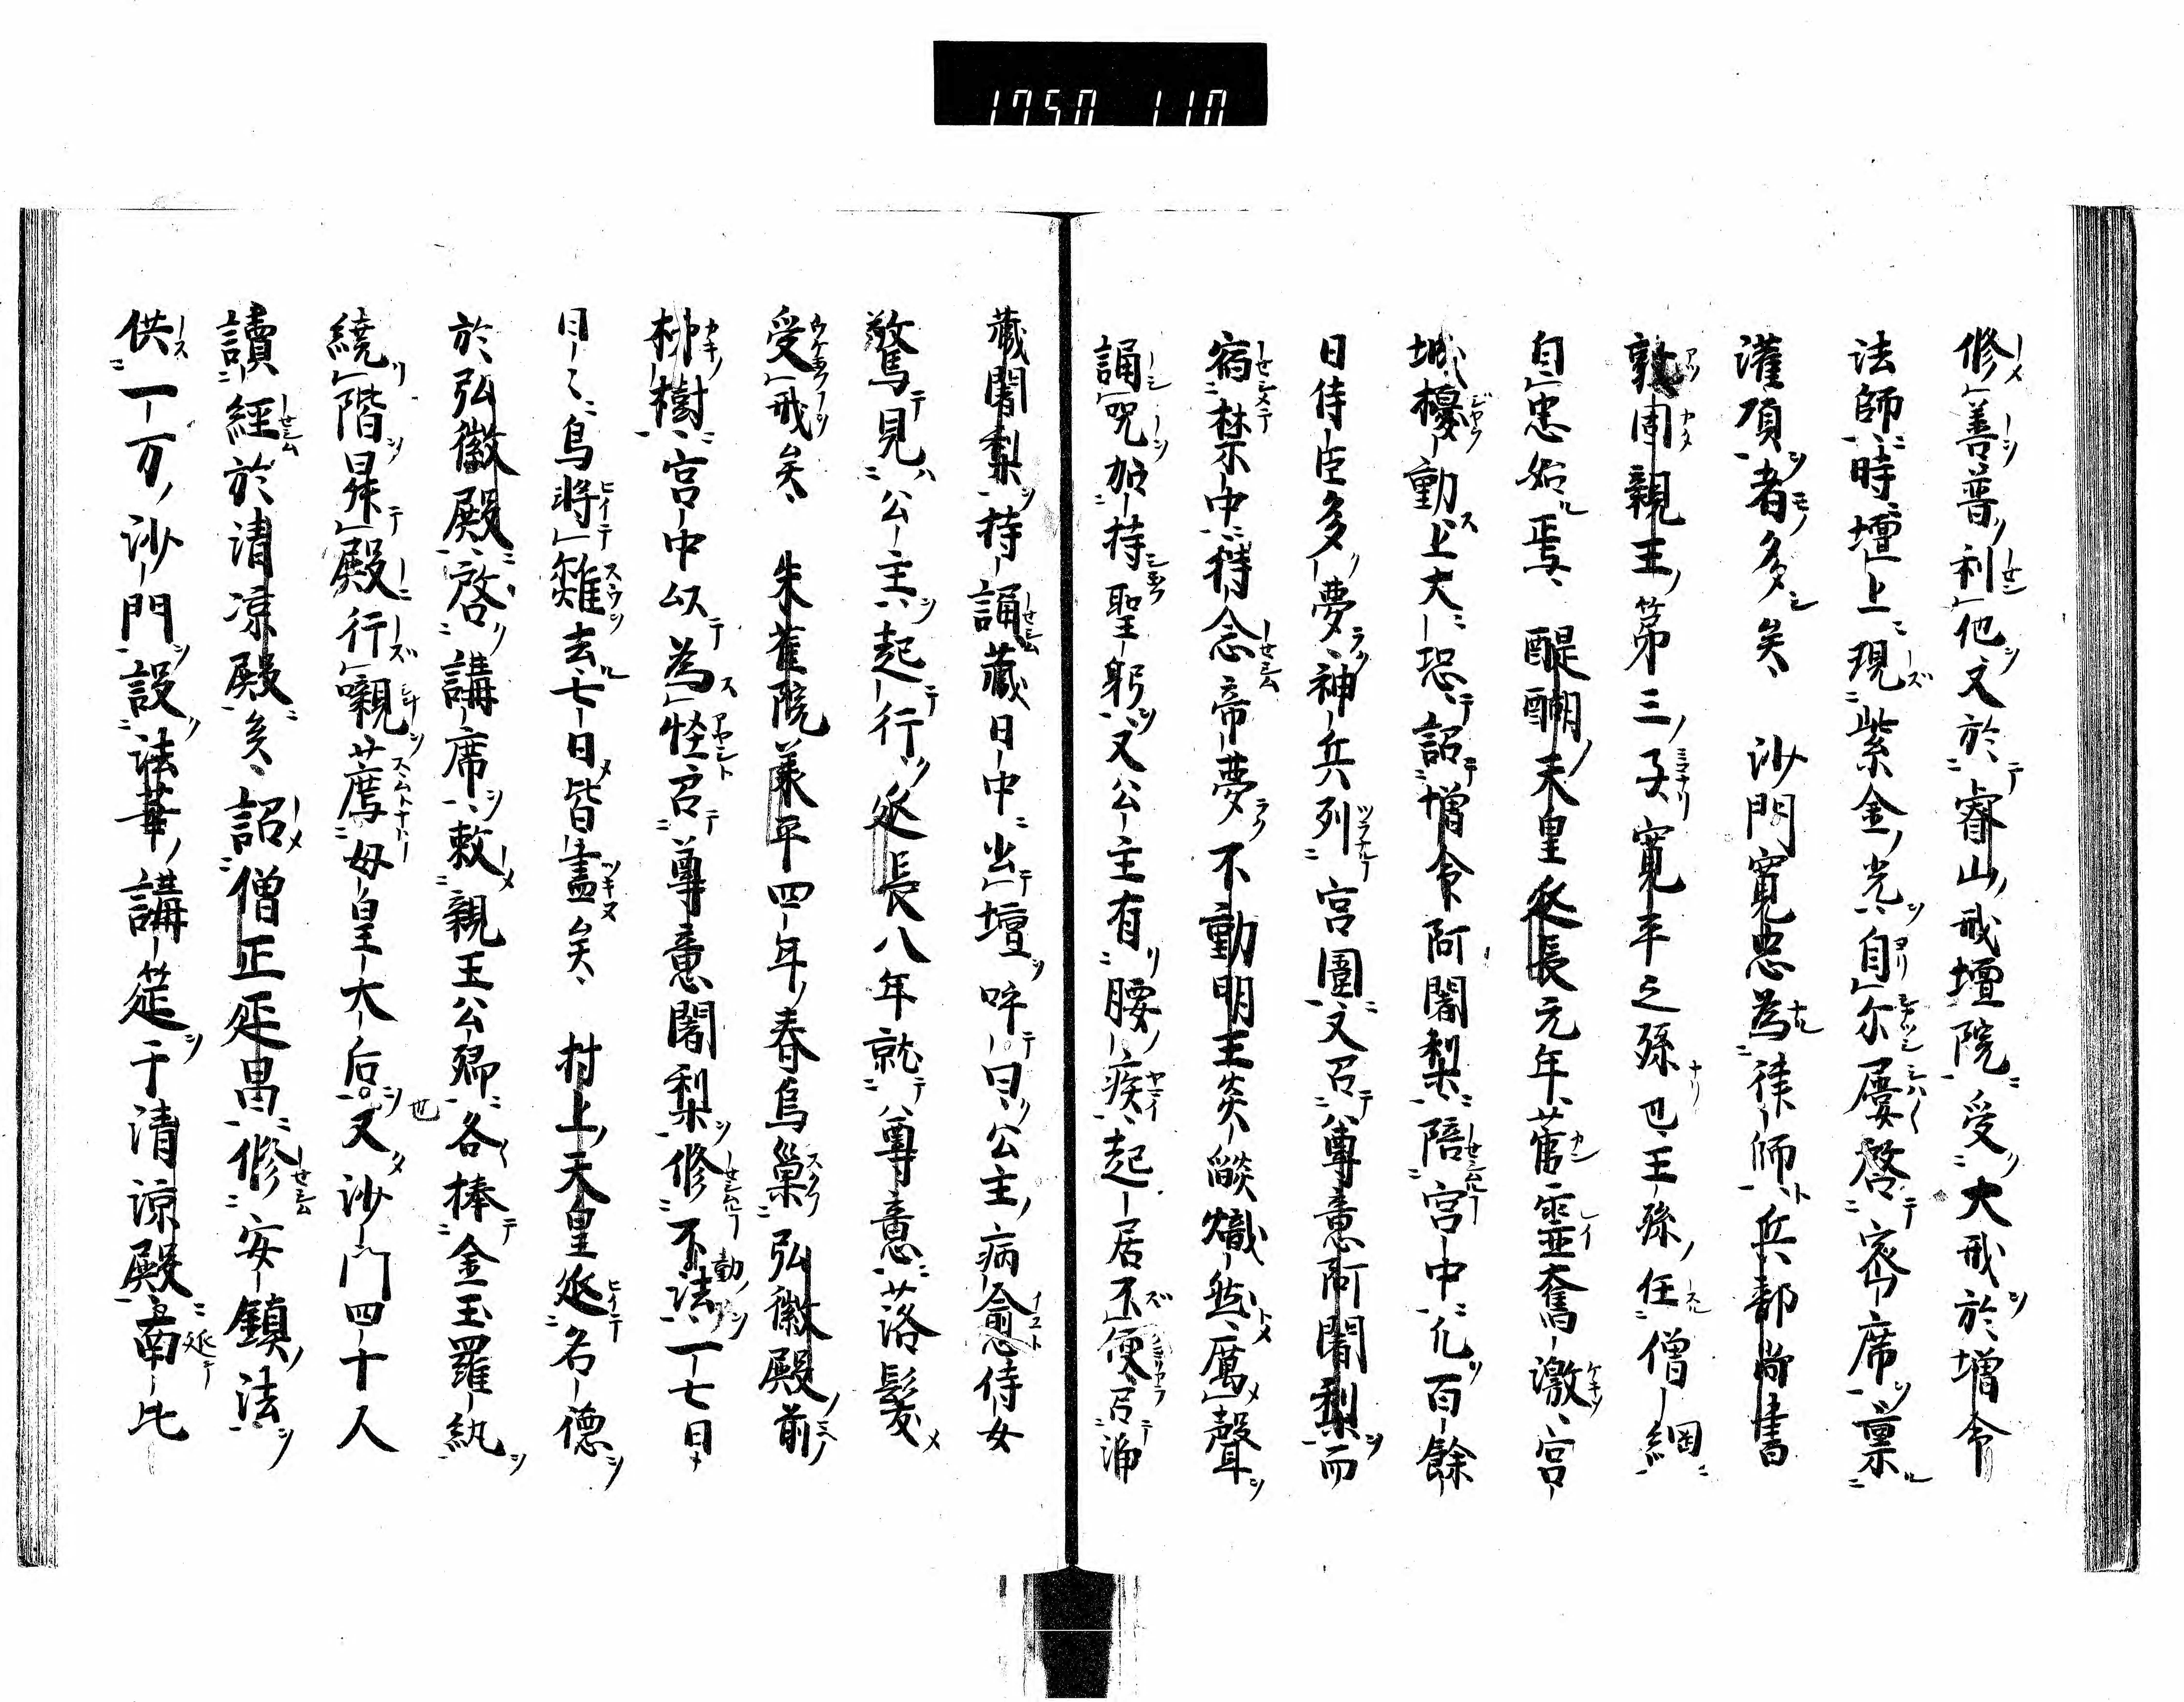 1750 110
修善普利他又於睿山戒壇院受大戒於増命
法師時壇上現紫金光自尓屢啓密席禀
灌頂者多矣 沙門寛忠為律師兵部尚書
敦固親王第三子寛平之孫也王孫任僧綱
自忠始焉 醍醐天皇延長元年菅霊奮激宮
城擾動上大恐詔増命阿闍梨陪宮中凡百餘
日侍臣多夢神兵列宮圍又召尊意阿闍梨而
宿禁中持念帝夢不動明王炎燄熾然厲聲
誦咒加持聖躬又公主有腰疾起居不便召浄
蔵闍梨持誦蔵日中出壇呼曰公主病愈侍女
驚見公主起行延長八年就尊意落髪
受戒矣 朱雀院承平四年春烏巣弘徽殿前
柳樹宮中以為怪召尊意闍梨修不動法一七日
日々烏将雛去七日皆盡矣 村上天皇延名徳
於弘徽殿啓講席敕親王公卿各捧金玉羅紈
繞階昇殿行嚫薦母皇大后也又沙門四十人
讀經於清凉殿矣詔僧正延昌修安鎮法
供一万沙門設法華講筵于清涼殿召南北